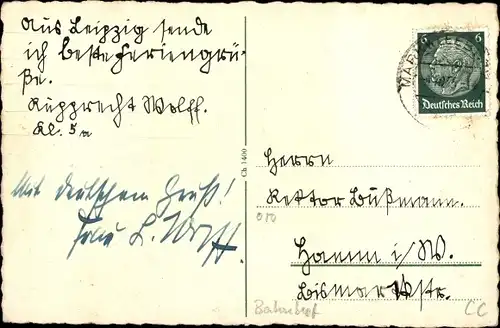 Aus Leipzig sende
ich beste Feriengrü-
ße.
Rupprecht Wolff.
Kl. 5a
Mit deutschem Gruß!
Frau L. Wolff.
Ch 1400
6 6
Deutsches Reich
Herrn
Rektor Bußmann.
Hamm i/W.
Bismarckstr.
Bahnhof
CC